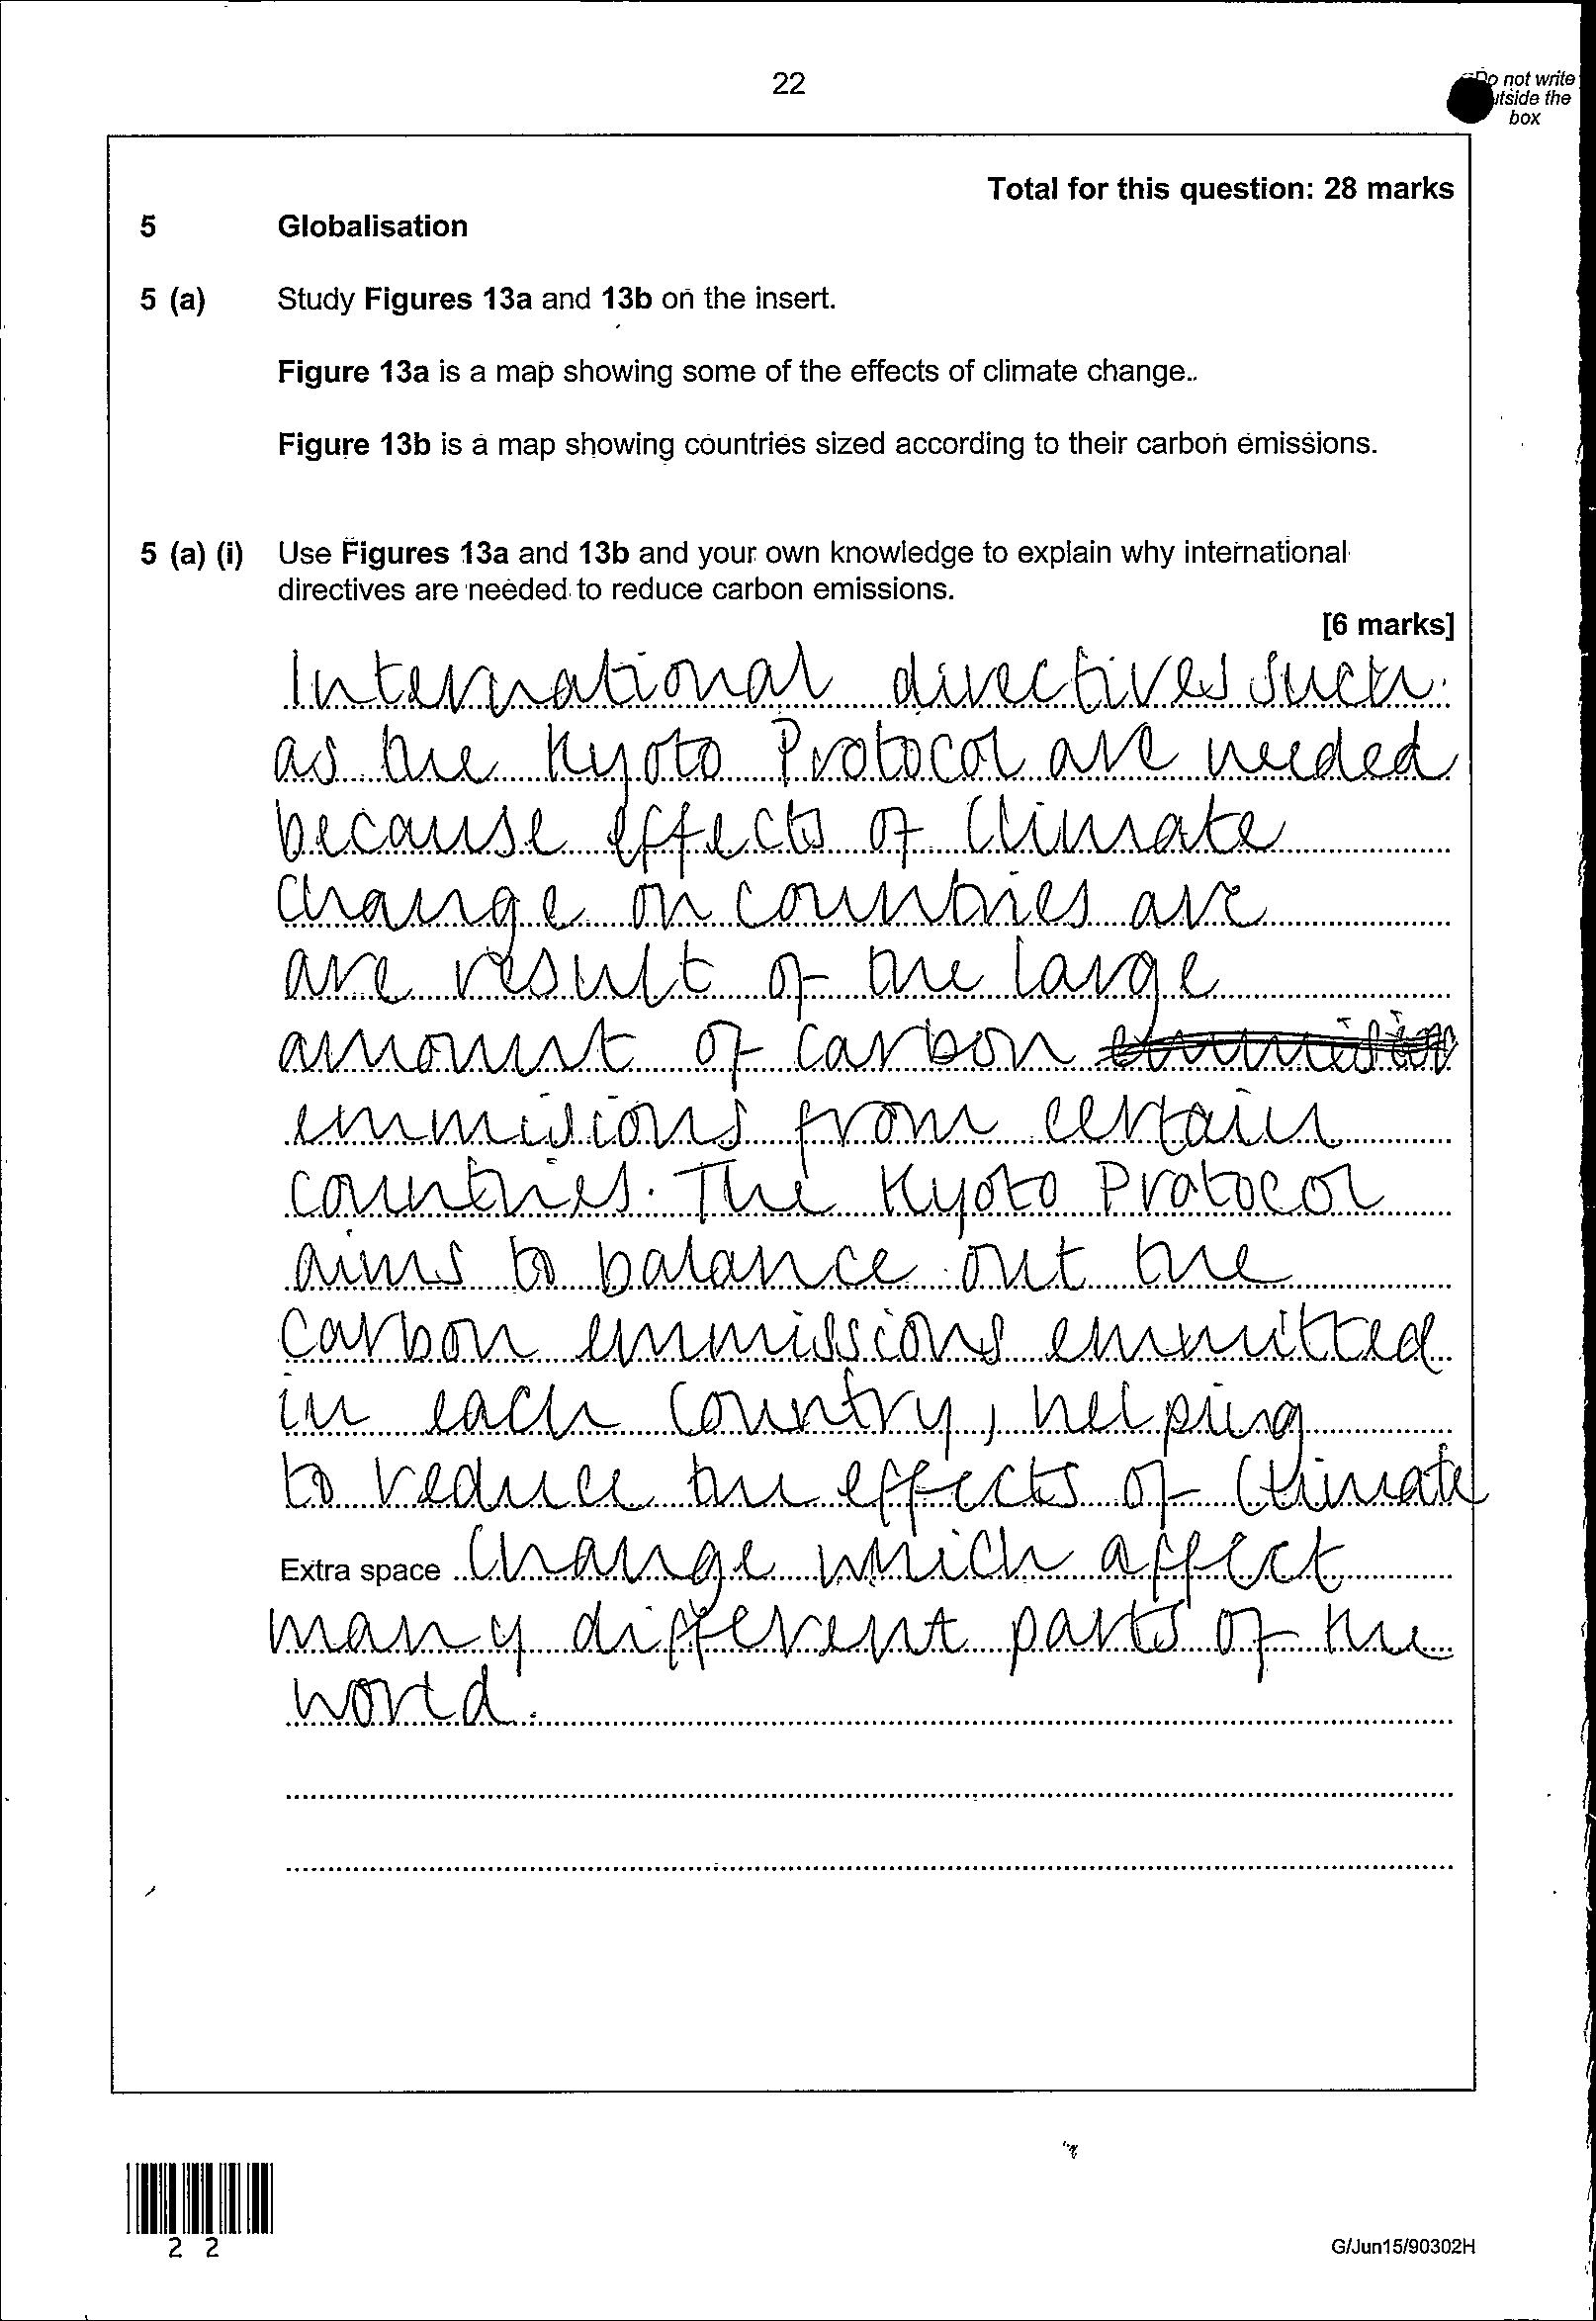 22
Do not write
outside the
box
Total for this question: 28 marks
5 Globalisation
5 (a) Study Figures 13a and 13b on the insert.
Figure 13a is a map showing some of the effects of climate change..
Figure 13b is a map showing countries sized according to their carbon emissions.
5 (a) (i) Use Figures 13a and 13b and your own knowledge to explain why international
directives are needed to reduce carbon emissions.
[6 marks]
International directives such
as the Kyoto Protocol are needed
because effects of Climate
Change on countries are
are result of the large
amount of carbon
emmisions from certain
countries. The Kyoto Protocol
aims to balance out the
carbon emmissions emmitted
in each country, helping
to reduce the effects of Climate
Extra space Change which affect
many different parts of the
world.
2 2
G/Jun15/90302H